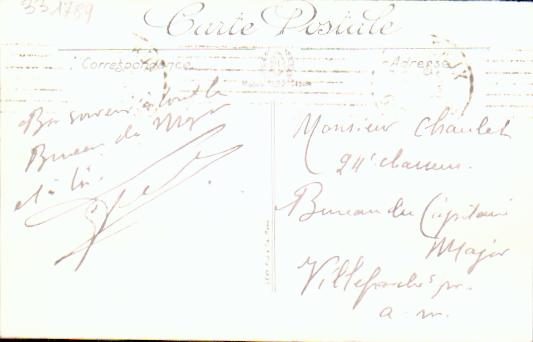 331789
Carte Postale
Correspondance
Adresse
Bon souvenir à tout le
Bureau du Major
et à toi.
Monsieur Chaulet
24e chasseurs.
Bureau du Capitaine
Major
Villefranche s/ m.
a. m.